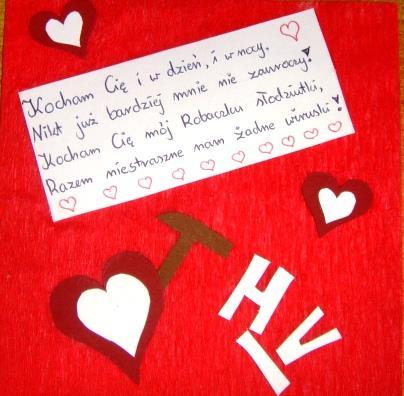 Kocham Cię i w dzień, i w nocy.
Nikt już bardziej mnie nie zauroczy!
Kocham Cię mój Robaczku słodziutki,
Razem niestraszne nam żadne wiruski!
HIV